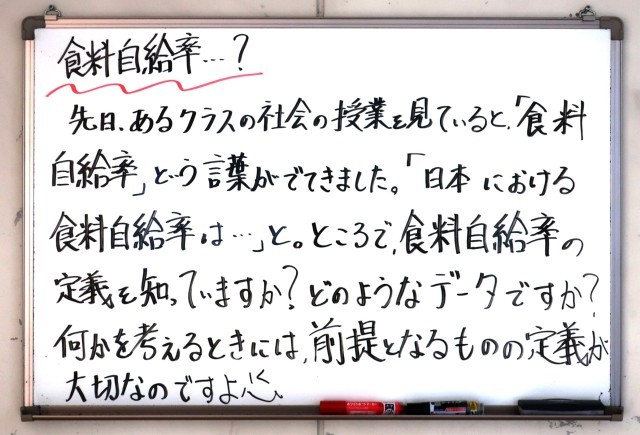 食料自給率…?
先日、あるクラスの社会の授業を見ていると、「食料
自給率」という言葉がでてきました。「日本における
食料自給率は…」と。ところで、食料自給率の
定義を知っていますか?どのようなデータですか?
何かを考えるときには、前提となるものの定義が
大切なのですよ